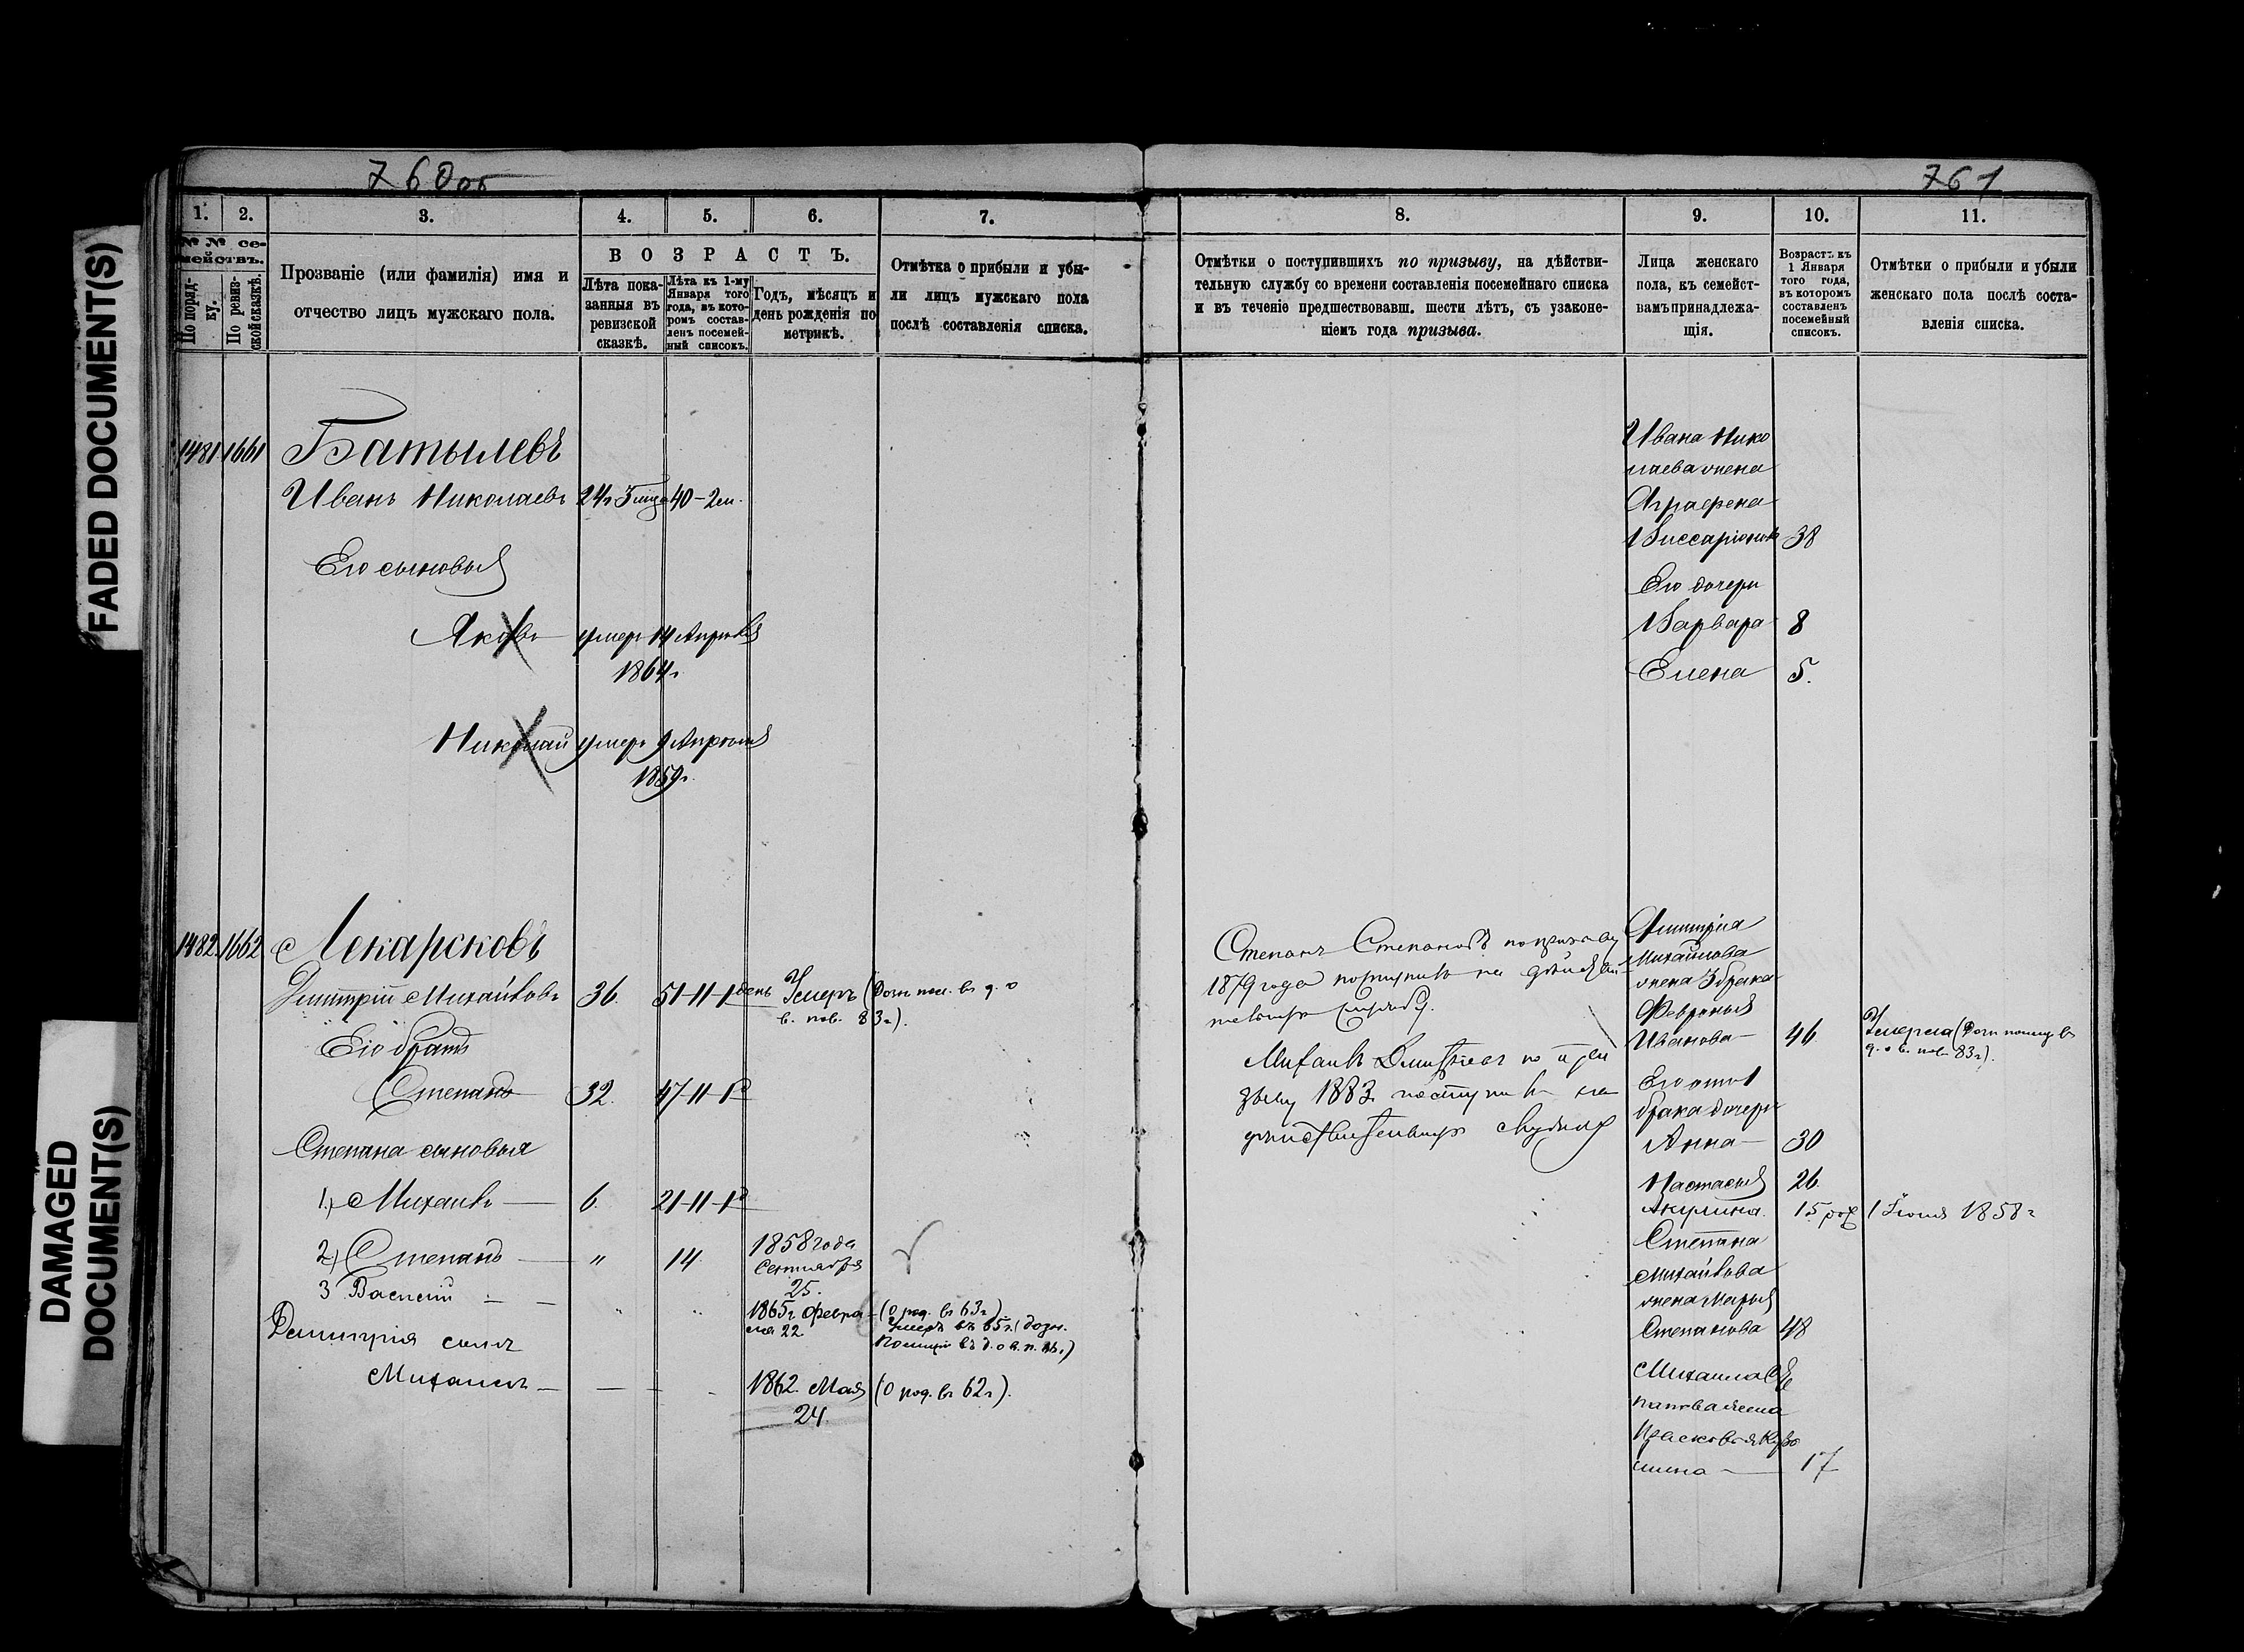 FADED DOCUMENT(S)
DAMAGED
DOCUMENT(S)
760об
1.
2.
3.
4.
5.
6.
7.
№ № се-
мействъ.
По поряд-
ку.
По ревиз-
ской сказкѣ.
Прозваніе (или фамилія) имя и
отчество лицъ мужскаго пола.
ВОЗРАСТЪ.
Лѣта пока-
занныя въ
ревизской
сказкѣ.
Лѣта къ 1-му
Января того
года, въ кото-
ромъ состав-
ленъ посемей-
ный списокъ.
Годъ, мѣсяцъ и
день рожденія по
метрикѣ.
Отмѣтка о прибыли и убы-
ли лицъ мужскаго пола
послѣ составленія списка.
1481 1661 Батылевъ
Иванъ Николаевъ 24 40-2м.
Его сыновья
Яковъ умеръ 14 Апрѣля
1864г.
Николай умеръ 9 Апрѣля
1859г.
1482 1662 Лекарсковъ
Дмитрій Михайловъ 36. 51-11-1 день Умеръ (
в. 83г).
Его братъ
Степанъ 32. 47-11-1
Степана сыновья
1) Михаилъ — 6. 21-11-1
2) Степанъ — " 14. 1858 года
Сентября
25.
3 Василий — " " 1865г Февра-
ля 22
(О род. въ 63г)
Умеръ въ 65г. (
Дмитрія сынъ
Михаилъ — 1862. Мая (О род. въ 62г).
24.
761
8.
9.
10.
11.
Отмѣтки о поступившихъ по призыву, на дѣйстви-
тельную службу со времени составленія посемейнаго списка
и въ теченіе предшествовавш. шести лѣтъ, съ узаконе-
ніемъ года призыва.
Лица женскаго
пола, къ семейст-
вамъ принадлежа-
щія.
Возрастъ къ
1 Января
того года,
въ которомъ
составленъ
посемейный
списокъ.
Отмѣтки о прибыли и убыли
женскаго пола послѣ соста-
вленія списка.
Ивана Нико
лаева жена
Аграфена
Виссаріонова 38
Его дочери
Варвара 8
Елена 5.
Степанъ Степановъ по призыву
1879 года поступилъ на дѣйстви
тельную службу.
Михаилъ Дмитріевъ по при
зыву 1883 поступилъ на
дѣйствительную службу
Дмитрія
Михайлова
жена 3 брака
Февронья
Ивановна 46
Умерла (
83г).
Его от 1
брака дочери
Анна — 30
Настасья 26.
Акулина. 15 рож 1 Іюня 1858г
Степана
Михайлова
жена Марья
Степанова 48
Михаила Сте
панова жена
Прасковья
17